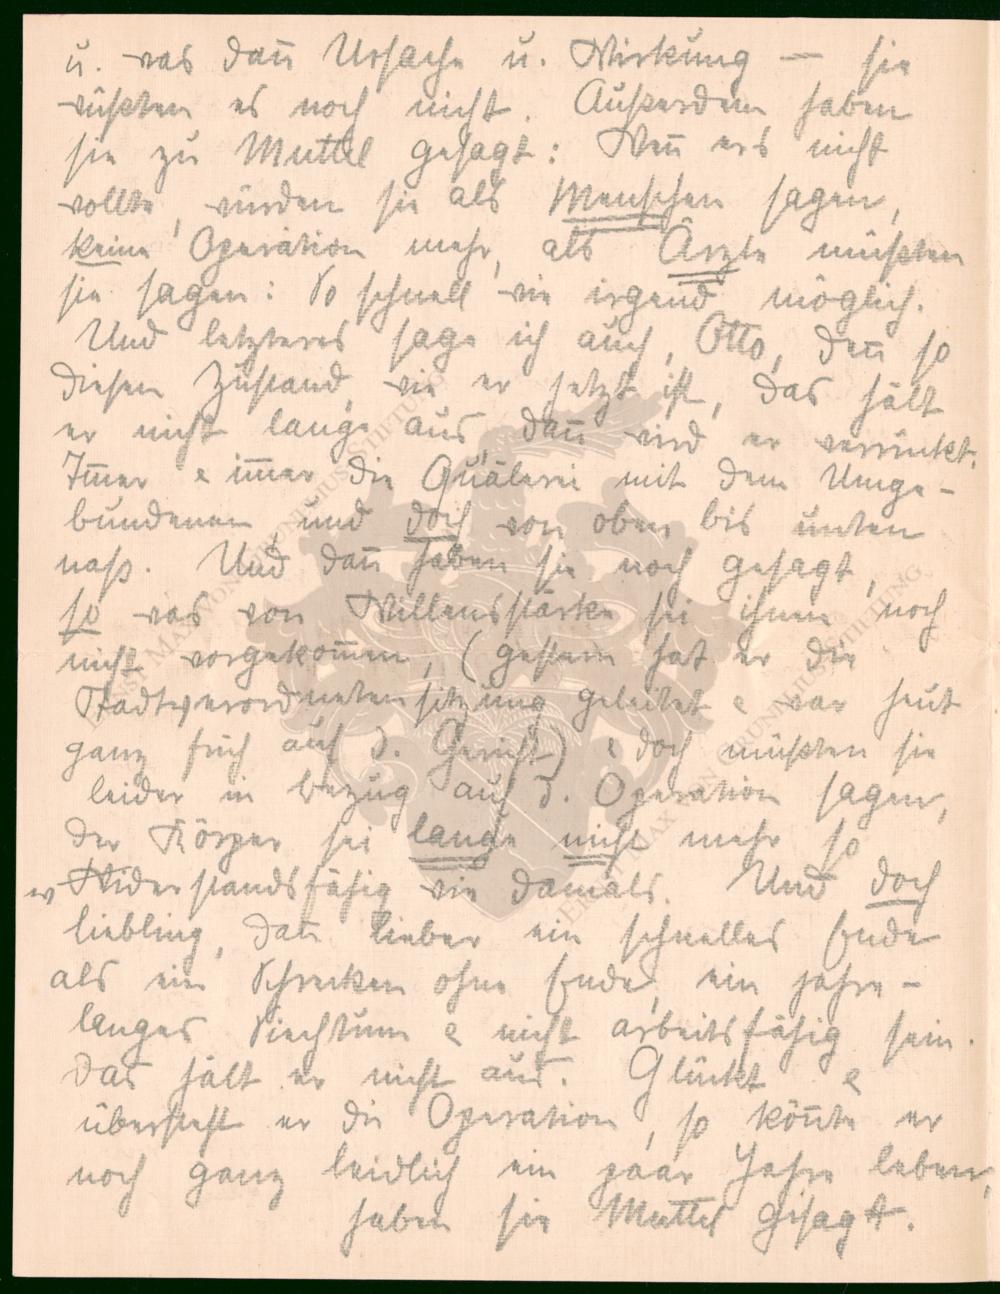 u. was dañ Ursache u. Wirkung — sie
wüßten es noch nicht. Außerdem haben
sie zu Muttel gesagt: Weñ ers nicht
wollte, würden sie als Menschen sagen,
keine Operation mehr, als Ärzte müßten
sie sagen: So schnell wie irgend möglich.
Und letzteres sage ich auch, Otto, deñ so
diesen Zustand, wie er jetzt ist, das hält
er nicht lange aus, dañ wird er verrückt.
Im̄er e im̄er die Quälerei mit dem Umge-
bundenen und doch von oben bis unten
naß. Und dañ haben sie noch gesagt,
so was von Willensstärke sei ihnen noch
nicht vorgekom̄en, (gestern hat er die
Stadtverordnetensitzung geleitet e war heut
ganz früh auf d. Gericht) e doch müßten sie
leider in bezug auf d. Operation sagen,
der Körper sei lange nicht mehr so
w Widerstandsfähig wie damals. Und doch
liebling, dañ lieber ein schnelles Ende
als ein Schrecken ohne Ende, ein jahre-
langes Siechtum e nicht arbeitsfähig sein.
Das hält er nicht aus. Glückt e
übersteht er die Operation, so köñte er
noch ganz leidlich ein paar Jahre leben,
haben sie Muttel gesagt.
ERNST MAX VON GRUNELIUS STIFTUNG
ERNST MAX VON GRUNELIUS STIFTUNG